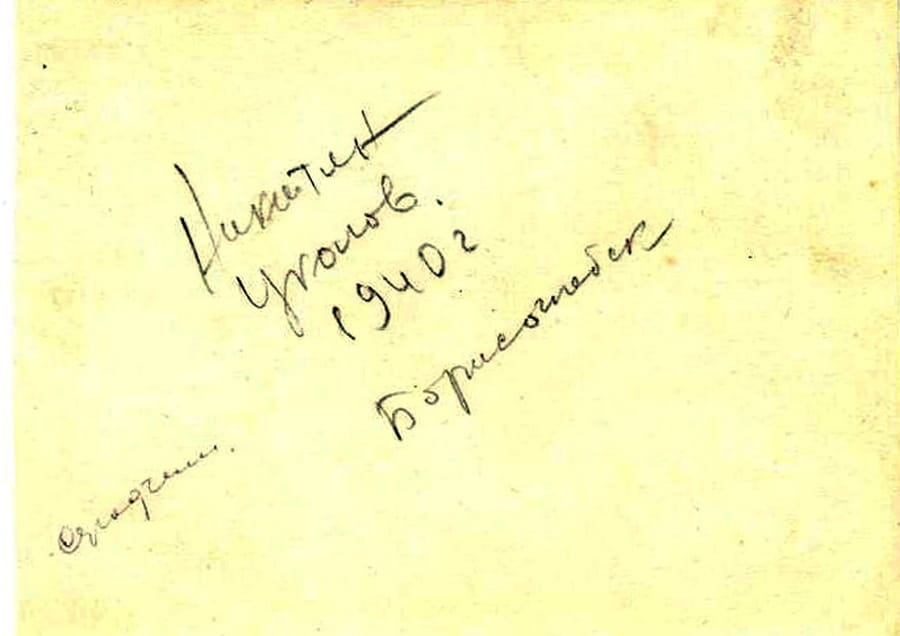 Никитин
Уколов.
1940 г
Борисоглебск